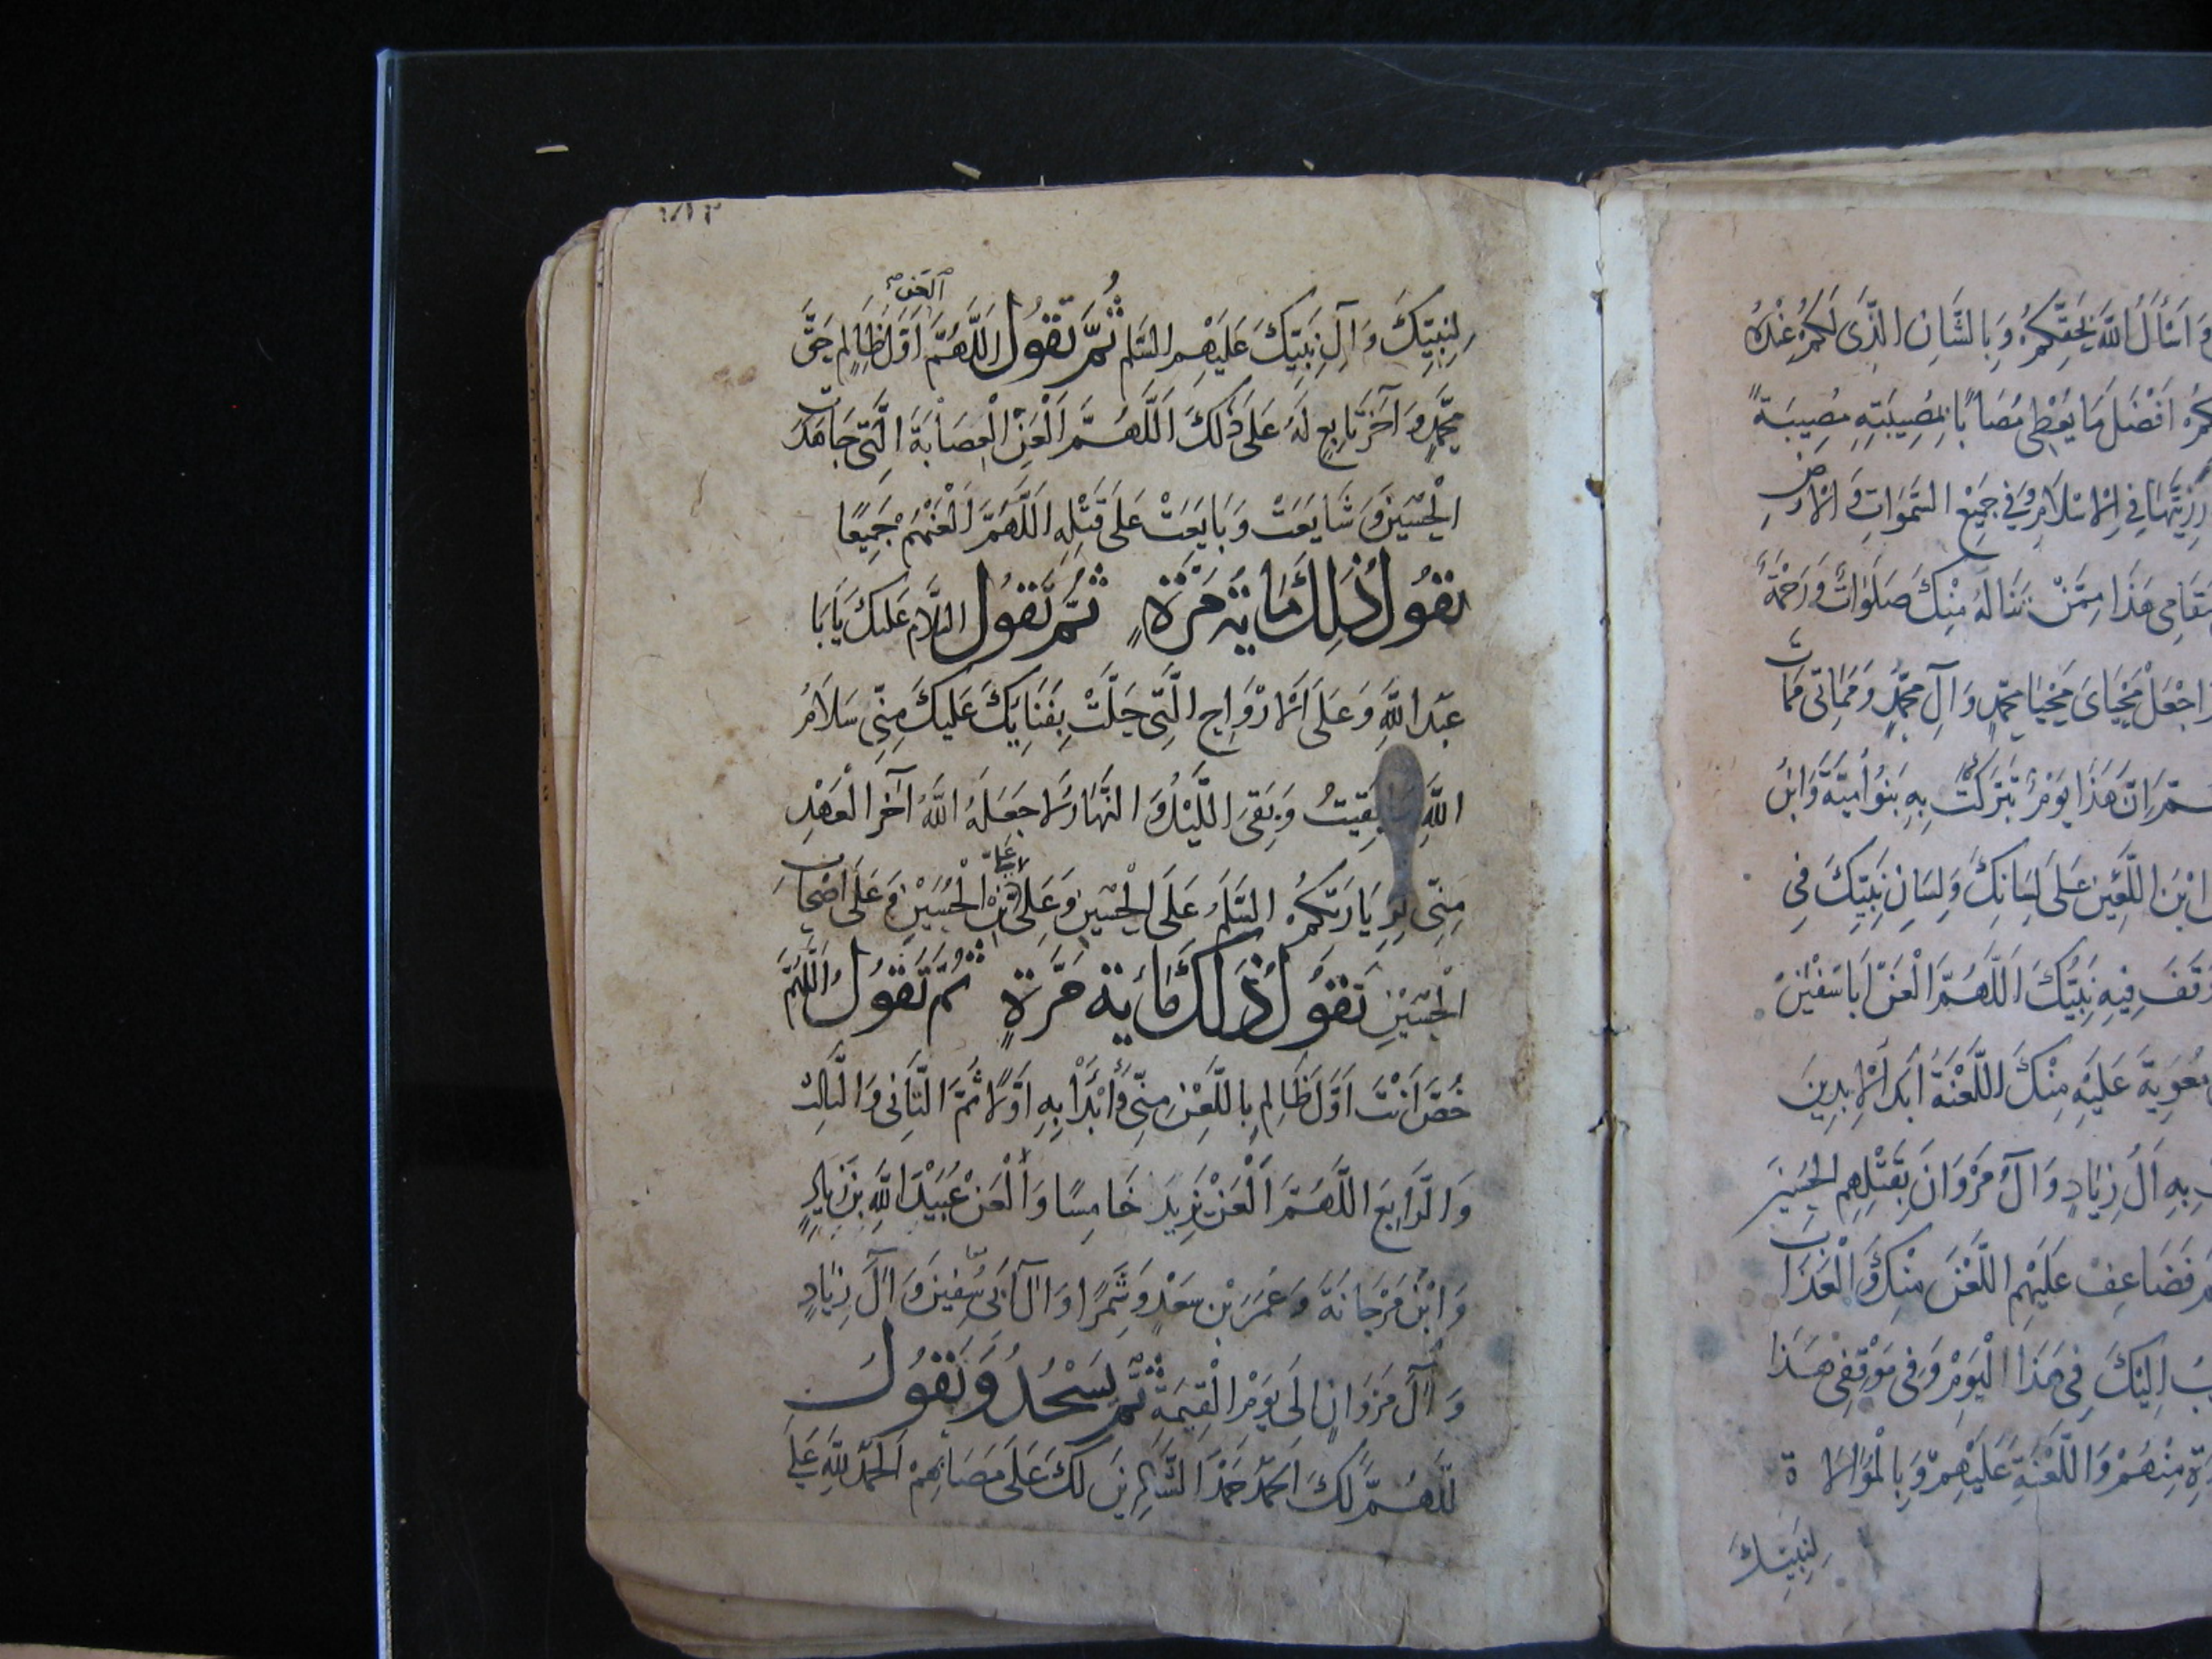 وَاَسْأَلُ اللّٰهَ بِحَقِّكُمْ وَبِالشَّانِ الَّذِى لَكُمْ عِنْدَهُ
اَفْضَلَ مَا يُعْطِى مُصَابًا بِمُصِيبَتِهِ مُصِيبَةً
رَزِيَّتَهَا فِى الْاِسْلَامِ وَفِى جَمِيعِ السَّمَوَاتِ وَالْاَرْضِ
مَقَامِى هَذَا مِمَّنْ تَنَالُهُ مِنْكَ صَلَوَاتٌ وَرَحْمَةٌ
اجْعَلْ مَحْيَاىَ مَحْيَا مُحَمَّدٍ وَآلِ مُحَمَّدٍ وَمَمَاتِى مَمَاتَ
اِنَّ هَذَا يَوْمٌ تَبَرَّكَتْ بِهِ بَنُو اُمَيَّةَ وَابْنُ
ابْنَ اللَّعِينِ عَلَى لِسَانِكَ وَلِسَانِ نَبِيِّكَ فِى
وَقَفَ فِيهِ نَبِيُّكَ اَللَّهُمَّ الْعَنْ اَبَا سُفْيٰنَ
مُعٰوِيَةَ عَلَيْهِ مِنْكَ اللَّعْنَةُ اَبَدَ الْاٰبِدِينَ
بِهِ آلُ زِيَادٍ وَآلُ مَرْوَانَ بِقَتْلِهِمِ الْحُسَيْنَ
فَضَاعِفْ عَلَيْهِمِ اللَّعْنَ مِنْكَ وَالْعَذَابَ
اِلَيْكَ فِى هَذَا الْيَوْمِ وَفِى مَوْقِفِى هَذَا
مِنْهُمْ وَاللَّعْنَةِ عَلَيْهِمْ وَبِالْمُوَالَاةِ
لِنَبِيِّكَ
لِنَبِيِّكَ وَآلِ نَبِيِّكَ عَلَيْهِمُ السَّلَم ثُمَّ تَقُولُ اَللَّهُمَّ الْعَنْ اَوَّلَ ظَالِمٍ حَقَّ
مُحَمَّدٍ وَآخَرَ تَابِعٍ لَهُ عَلَى ذَلِكَ اَللَّهُمَّ الْعَنِ الْعِصَابَةَ الَّتِى جَاهَدَتِ
الْحُسَيْنَ وَشَايَعَتْ وَبَايَعَتْ عَلَى قَتْلِهِ اَللَّهُمَّ الْعَنْهُمْ جَمِيعًا
تَقُولُ ذَلِكَ مَايَةَ مَرَّةٍ ثُمَّ تَقُولُ السَّلَامُ عَلَيْكَ يَا اَبَا
عَبْدِ اللّٰهِ وَعَلَى الْاَرْوَاحِ الَّتِى حَلَّتْ بِفِنَائِكَ عَلَيْكَ مِنِّى سَلَامُ
اللّٰهِ مَا بَقِيتُ وَبَقِىَ اللَّيْلُ وَالنَّهَارُ وَلَا جَعَلَهُ اللّٰهُ آخِرَ الْعَهْدِ
مِنِّى لِزِيَارَتِكُمْ السَّلَمُ عَلَى الْحُسَيْنِ وَعَلَى عَلِىِّ بْنِ الْحُسَيْنِ وَعَلَى اَصْحَابِ
الْحُسَيْنِ تَقُولُ ذَلِكَ مَايَةَ مَرَّةٍ ثُمَّ تَقُولُ اَللَّهُمَّ
خُصَّ اَنْتَ اَوَّلَ ظَالِمٍ بِاللَّعْنِ مِنِّى وَابْدَأْ بِهِ اَوَّلًا ثُمَّ الثَّانِى وَالثَّالِثَ
وَالرَّابِعَ اَللَّهُمَّ الْعَنْ يَزِيدَ خَامِسًا وَالْعَنْ عُبَيْدَ اللّٰهِ بْنَ زِيَادٍ
وَابْنَ مَرْجَانَةَ وَعُمَرَ بْنَ سَعْدٍ وَشِمْرًا وَآلَ اَبِى سُفْيٰنَ وَآلَ زِيَادٍ
وَآلَ مَرْوَانَ اِلَى يَوْمِ الْقِيٰمَةِ ثُمَّ تَسْجُدُ وَتَقُولُ
اَللَّهُمَّ لَكَ الْحَمْدُ حَمْدَ الشَّاكِرِينَ لَكَ عَلَى مُصَابِهِمْ اَلْحَمْدُ لِلّٰهِ عَلَى